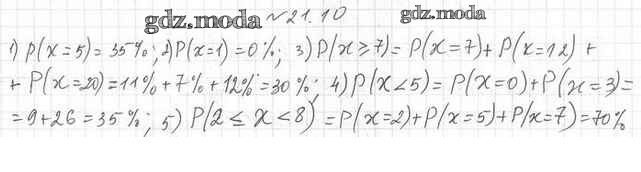 gdz.moda №21.10 gdz.moda
1) P(x=5)=35%; 2) P(x=1)=0%; 3) P(x≥7)=P(x=7)+P(x=12)+
+P(x=20)=11%+7%+12%=30%; 4) P(x<5)=P(x=0)+P(x=3)=
=9+26=35%; 5) P(2≤x<8)=P(x=2)+P(x=5)+P(x=7)=70%